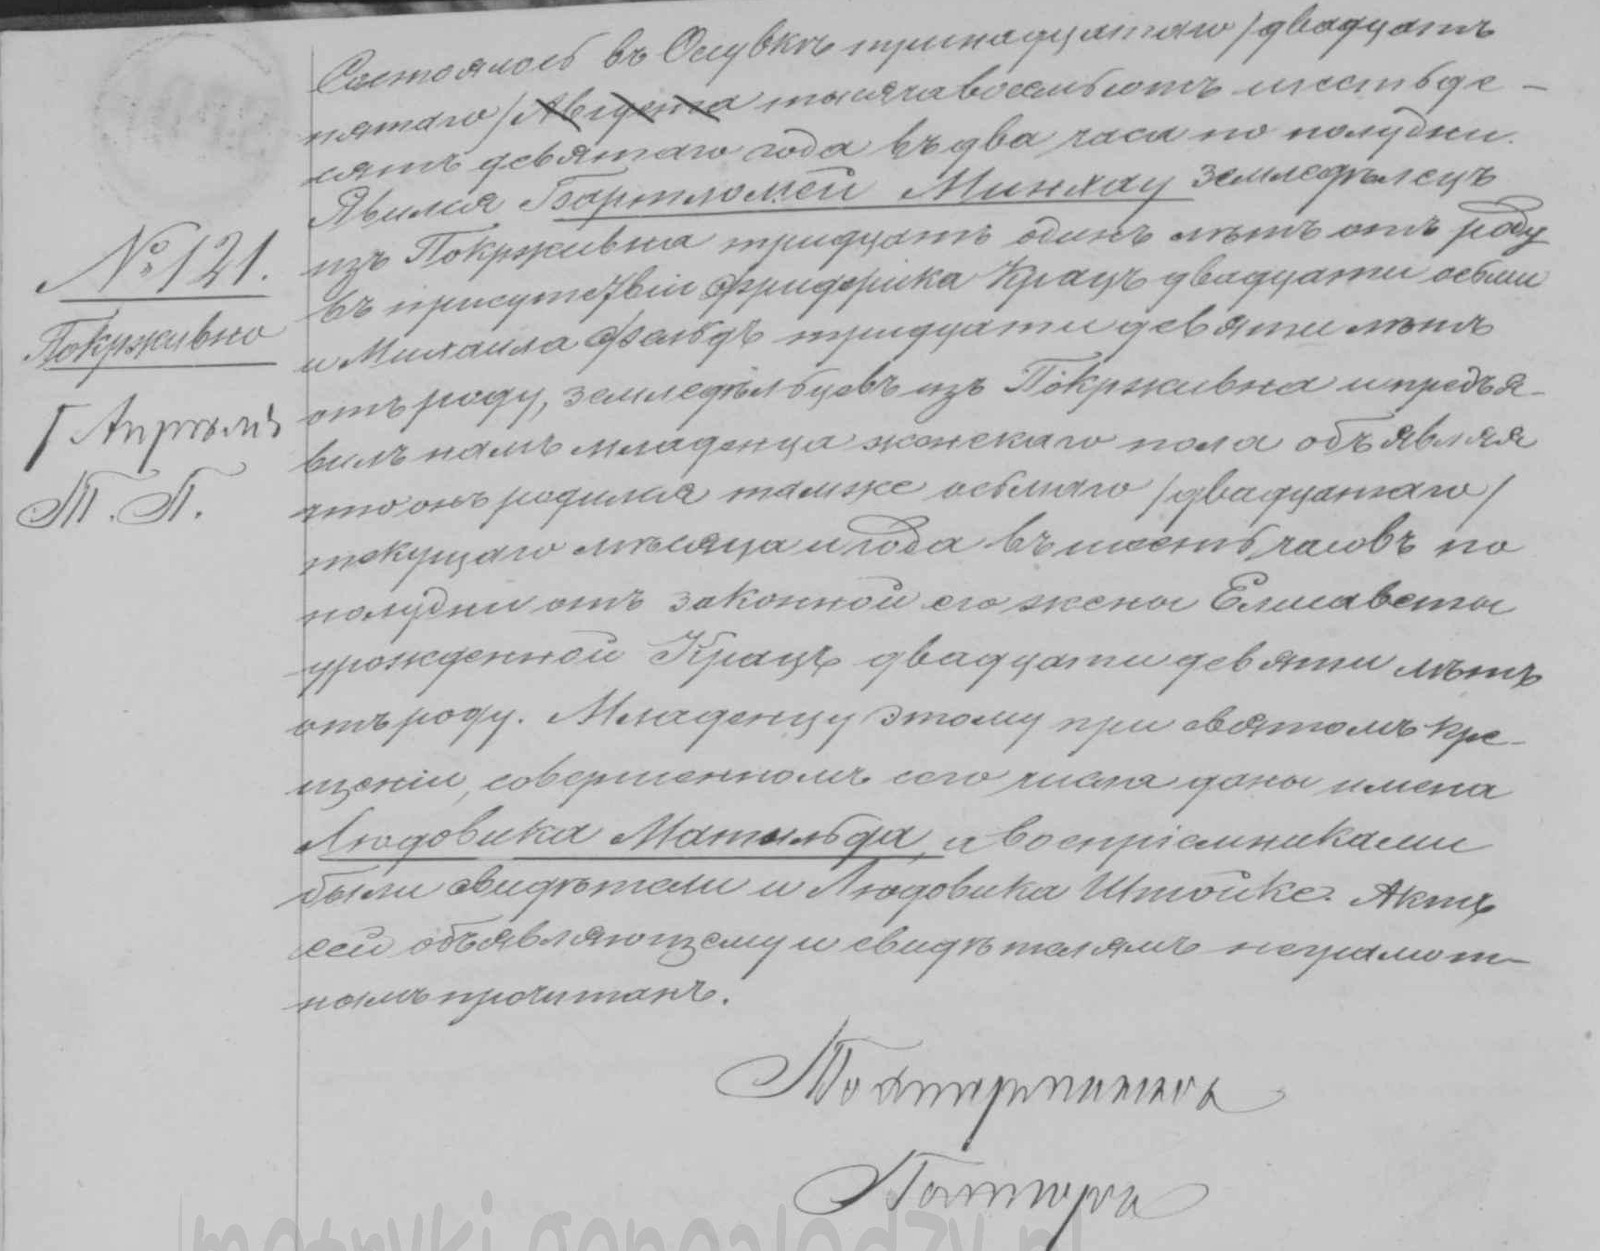 Состоялось въ Осувкѣ тринадцатаго /двадцать
№ 121.
Покрживно
Г Апрѣля
Т. П.
пятаго/ Августа тысяча восемьсотъ шестьде-
сятъ девятаго года въ два часа по полудни.
Явился Бартломей Минхау земледѣлецъ
изъ Покрживна тридцать одинъ лѣтъ отъ роду
въ присутствіи Фридерика Крацъ двадцати осьми
и Михаила Фельдъ тридцати девяти лѣтъ
отъ роду, земледѣльцевъ изъ Покрживна и предъя-
вилъ намъ младенца женскаго пола объявляя
что онъ родился тамже осьмаго /двадцатаго/
текущаго мѣсяца и года въ шесть часовъ по
полудни отъ законной его жены Елисаветы
урожденной Крацъ двадцати девяти лѣтъ
отъ роду. Младенцу этому при святомъ кре-
щеніи, совершенномъ сего числа даны имена
Людовика Матильда, а воспріемниками
были свидѣтели и Людовика Штойке. Актъ
сей объявляющему и свидѣтелямъ неграмот-
нымъ прочитанъ.
Пастора
metryki.genealodzy.pl